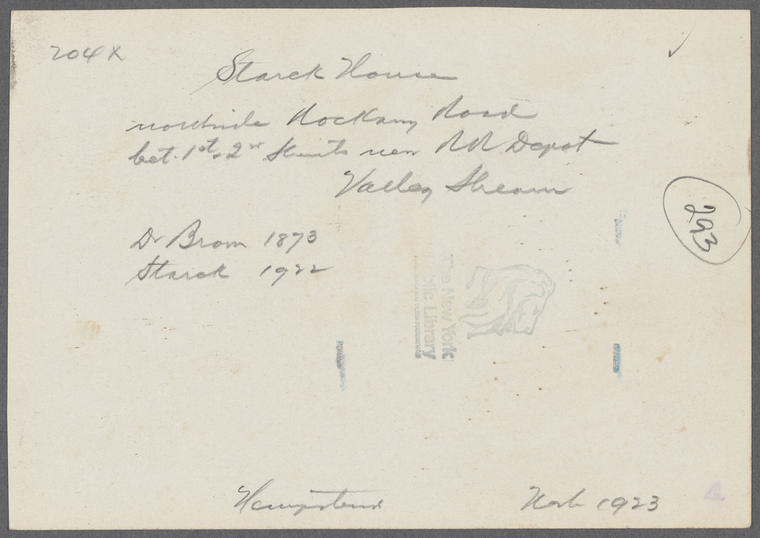 204X
Starck House
northside Rockaway Road
bet. 1st & 2nd Streets near RR Depot
Valley Stream
293
Dr Brown 1873
Starck 1922
The New York
Public Library
Hempstead
1923